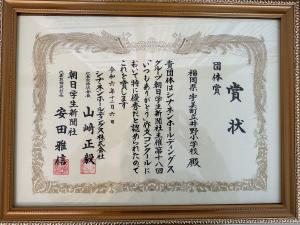 賞状
団体賞
福岡県宇美町立井野小学校 殿
貴団体はシナネンホールディングス
グループ朝日学生新聞社主催第十八回
いつもありがとう作文コンクールに
おいて特に優秀だと認められたので
これを賞します
令和六年十二月六日
シナネンホールディングス株式会社
代表取締役社長
山﨑正毅
朝日学生新聞社
代表取締役社長
安田雅信